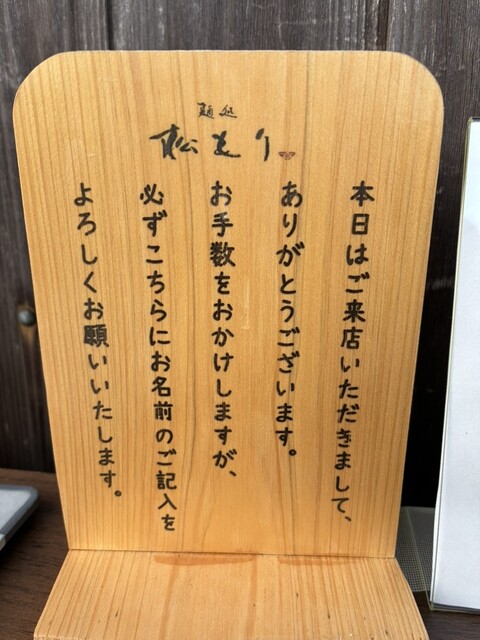 麺処
松もり
本日はご来店いただきまして、
ありがとうございます。
お手数をおかけしますが、
必ずこちらにお名前のご記入を
よろしくお願いいたします。